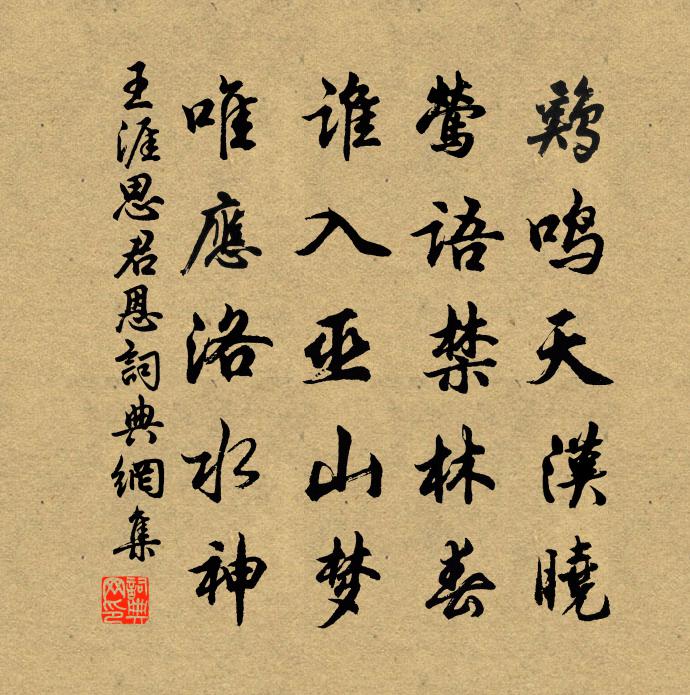 鷄鳴天漢曉
鶯語禁林春
誰入巫山梦
唯應洛水神
王涯思君恩詞典網集
詞典網印